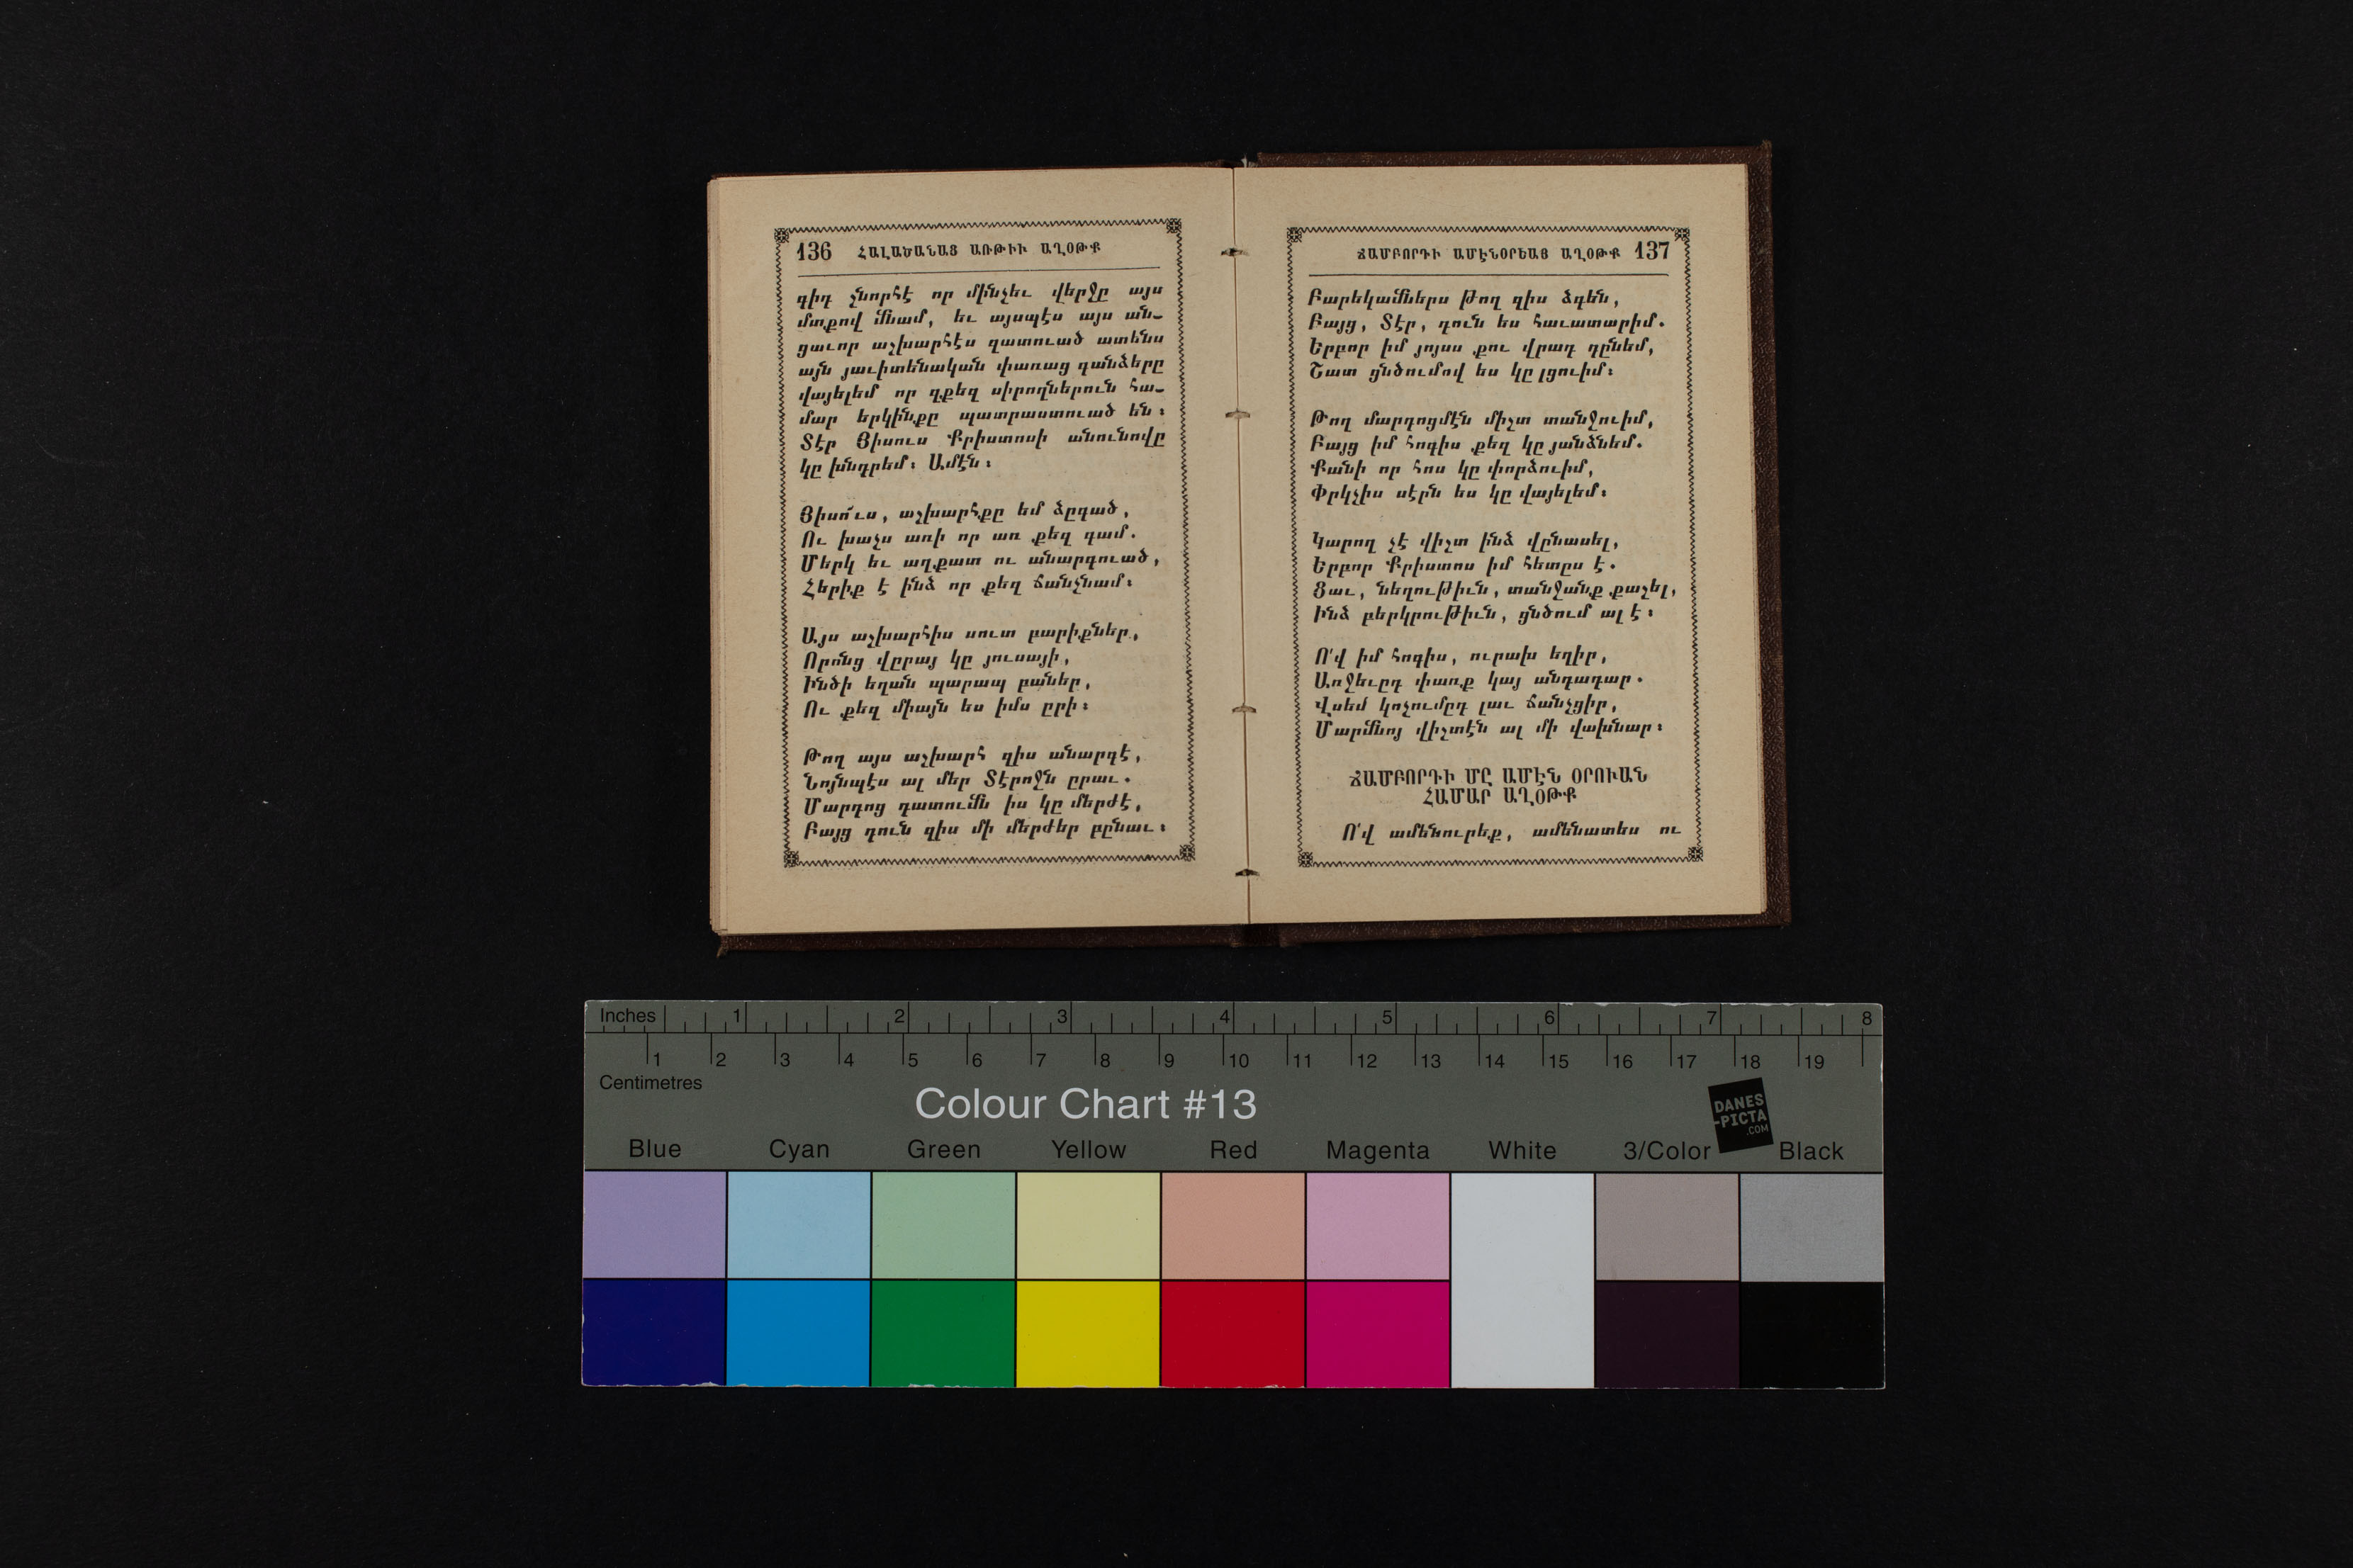 136 ՀԱԼԱԾԱՆԱՑ ԱՌԹԻՒ ԱՂՕԹՔ
գիդ շնորհէ որ մինչեւ վերջը այս
մտքով մնամ, եւ այսպէս այս ան-
ցաւոր աշխարհէս զատուած ատենս
այն յաւիտենական փառաց գանձերը
վայելեմ որ զքեզ սիրողներուն հա-
մար երկինքը պատրաստուած են։
Տէր Յիսուս Քրիստոսի անունովը
կը խնդրեմ։ Ամէն։
Յիսո՛ւս, աշխարհքը եմ ձըգած,
Ու խաչս առի որ առ քեզ գամ.
Մերկ եւ աղքատ ու անարգուած,
Հերիք է ինձ որ քեզ ճանչնամ։
Այս աշխարհիս սուտ բարիքներ,
Որոնց վըրայ կը յուսայի,
Ինծի եղան պարապ բաներ,
Ու քեզ միայն ես իմս ըրի։
Թող այս աշխարհ զիս անարգէ,
Նոյնպէս ալ մեր Տէրոջն ըրաւ.
Մարդոց գատումն իս կը մերժէ,
Բայց դուն զիս մի մերժեր բընաւ։
ՃԱՄԲՈՐԴԻ ԱՄԷՆՕՐԵԱՅ ԱՂՕԹՔ 137
Բարեկամներս թող զիս ձգեն,
Բայց, Տէր, դուն ես հաւատարիմ.
Երբոր իմ յոյսս քու վրադ դընեմ,
Շատ ցնծումով ես կը լցուիմ։
Թող մարդոցմէն միշտ տանջուիմ,
Բայց իմ հոգիս քեզ կը յանձնեմ.
Քանի որ հոս կը փորձուիմ,
Փրկչիս սէրն ես կը վայելեմ։
Կարող չէ վիշտ ինձ վընասել,
Երբոր Քրիստոս իմ հետըս է.
Ցաւ, նեղութիւն, տանջանք քաշել,
Ինձ բերկրութիւն, ցնծում ալ է։
Ո՛վ իմ հոգիս, ուրախ եղիր,
Առջեւըդ փառք կայ անդադար.
Վսեմ կոչումըդ լաւ ճանչցիր,
Մարմնոյ վիշտէն ալ մի վախնար։
ՃԱՄԲՈՐԴԻ ՄԸ ԱՄԷՆ ՕՐՈՒԱՆ
ՀԱՄԱՐ ԱՂՕԹՔ
Ո՛վ ամենուրեք, ամենատես ու
Inches 1 2 3 4 5 6 7 8
1 2 3 4 5 6 7 8 9 10 11 12 13 14 15 16 17 18 19
Centimetres
Colour Chart #13
DANES
-PICTA
.COM
Blue Cyan Green Yellow Red Magenta White 3/Color Black